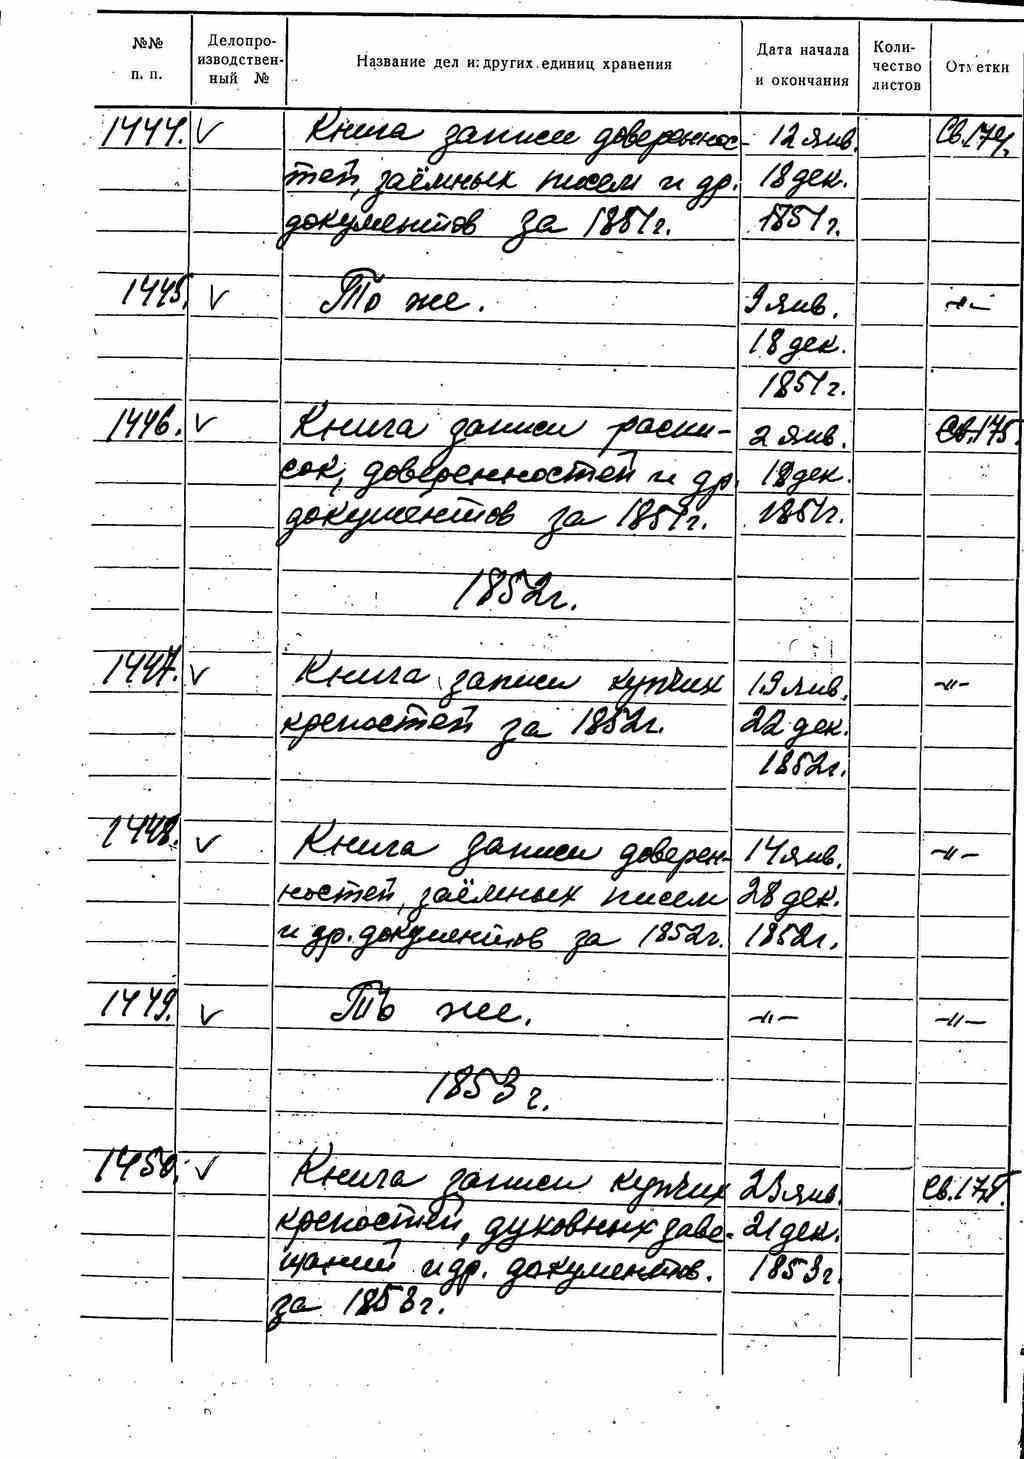 №№ п. п. Делопроизводственный № Название дел и других единиц хранения Дата начала и окончания Количество листов Отметки
1444. V Книга записи доверенносс- 12 янв. Св.174.
тей, заёмных писем и др. 18 дек.
документов за 1851г. 1851г.
1445. V То же. 9 янв. -"-
18 дек.
1851г.
1446. V Книга записи распи- 2 янв. Св.175.
сок, доверенностей и др. 18 дек.
документов за 1851г. 1851г.
1852г.
1447. V Книга записи купчих 19 янв. -"-
крепостей за 1852г. 22 дек.
1852г.
1448. V Книга записи доверен- 14 янв. -"-
ностей, заёмных писем 28 дек.
и др. документов за 1852г. 1852г.
1449. V То же. -"- -"-
1853 г.
1450. V Книга записи купчих 23 янв. Св.175.
крепостей, духовных заве- 21 дек.
щаний и др. документов. 1853г.
за 1853г.